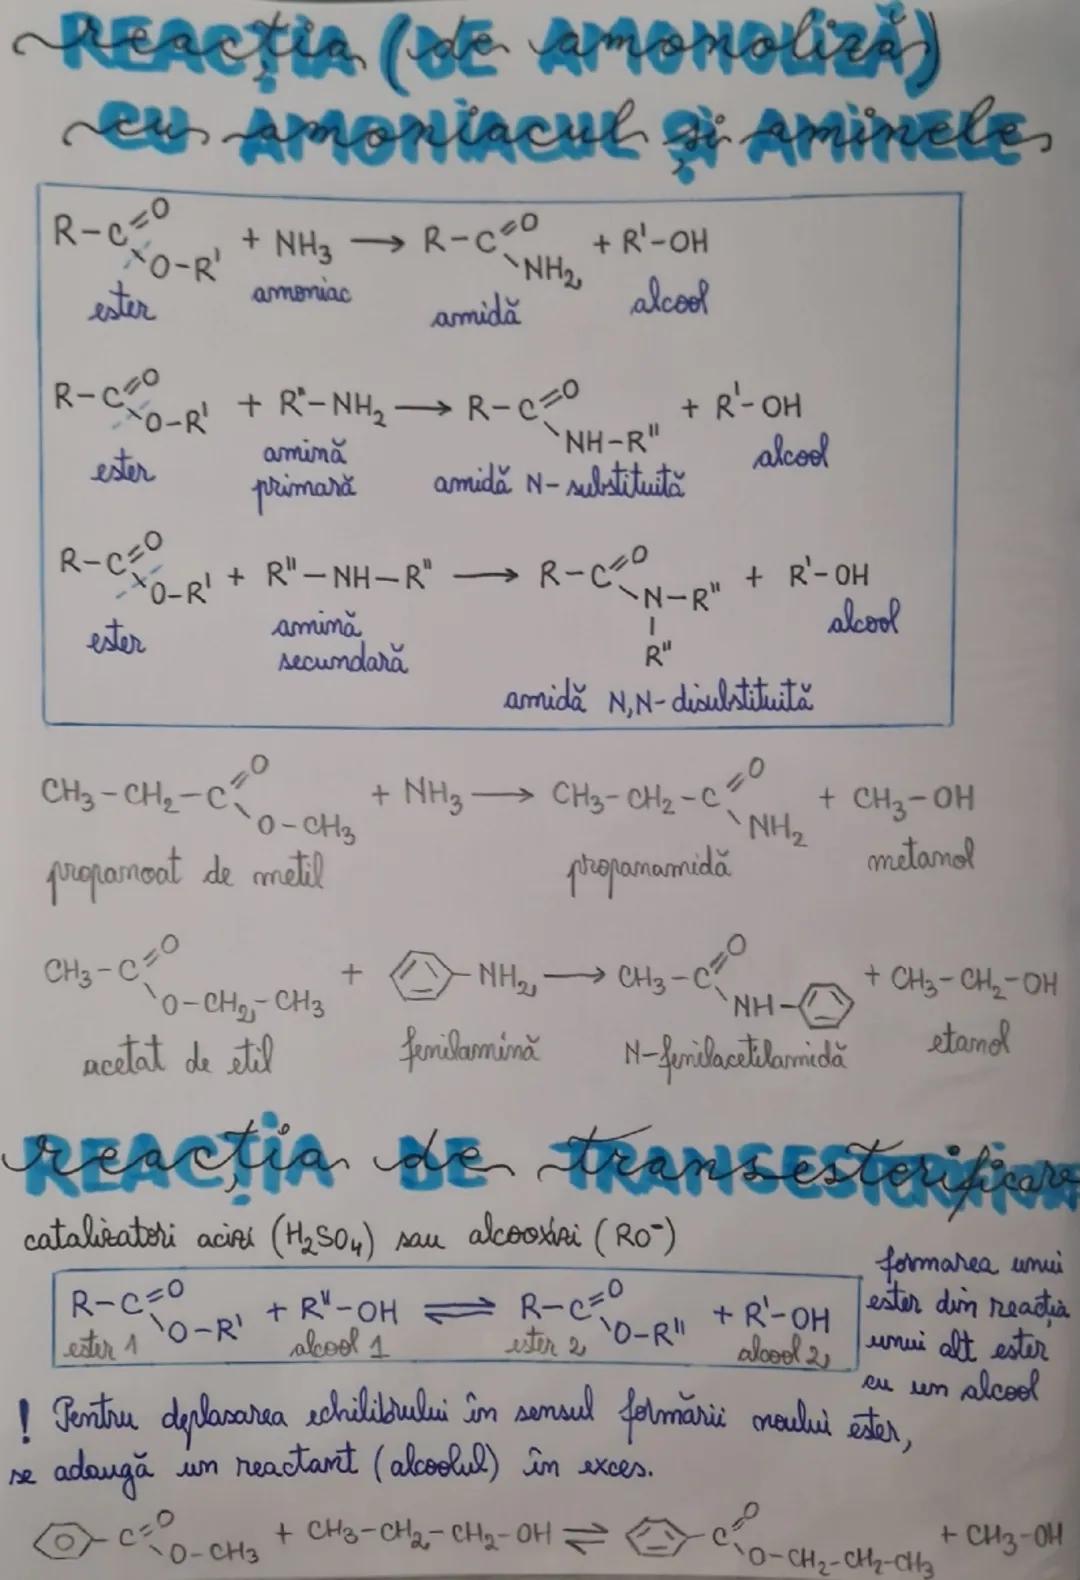 REACȚIA (DE AMONOLIZĂ)
CU AMONIACUL ȘI AMINELE
R-C(=O)-O-R' + NH₃ → R-C(=O)-NH₂ + R'-OH
ester amoniac amidă alcool
R-C(=O)-O-R' + R"-NH₂ → R-C(=O)-NH-R" + R'-OH
ester amină primară amidă N-substituită alcool
R-C(=O)-O-R' + R"-NH-R" → R-C(=O)-N(-R")-R" + R'-OH
ester amină secundară alcool
amidă N,N-disubstituită
CH₃-CH₂-C(=O)-O-CH₃ + NH₃ → CH₃-CH₂-C(=O)-NH₂ + CH₃-OH
propanoat de metil propanamidă metanol
CH₃-C(=O)-O-CH₂-CH₃ + -NH₂ → CH₃-C(=O)-NH- + CH₃-CH₂-OH
acetat de etil fenilamină N-fenilacetilamidă etanol
REACȚIA DE TRANSESTERIFICARE
catalizatori acizi (H₂SO₄) sau alcooxizi (RO⁻)
R-C(=O)-O-R' + R"-OH ⇌ R-C(=O)-O-R" + R'-OH
ester 1 alcool 1 ester 2 alcool 2
formarea unui
ester din reacția
unui alt ester
cu un alcool
! Pentru deplasarea echilibrului în sensul formării noului ester,
se adaugă un reactant (alcoolul) în exces.
-C(=O)-O-CH₃ + CH₃-CH₂-CH₂-OH ⇌ -C(=O)-O-CH₂-CH₂-CH₃ + CH₃-OH